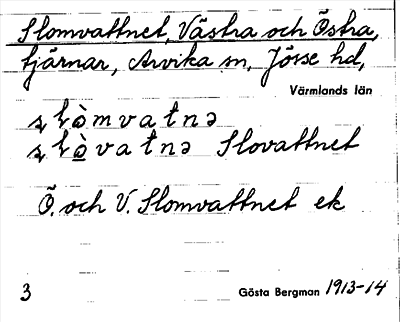 Slomvattnet, Västra och Östra,
tjärnar, Arvika sn, Jösse hd,
Värmlands län
ʂɫòmvatnə
ʂɫòvatnə Slovattnet
Ö. och V. Slomvattnet ek
3 Gösta Bergman 1913-14